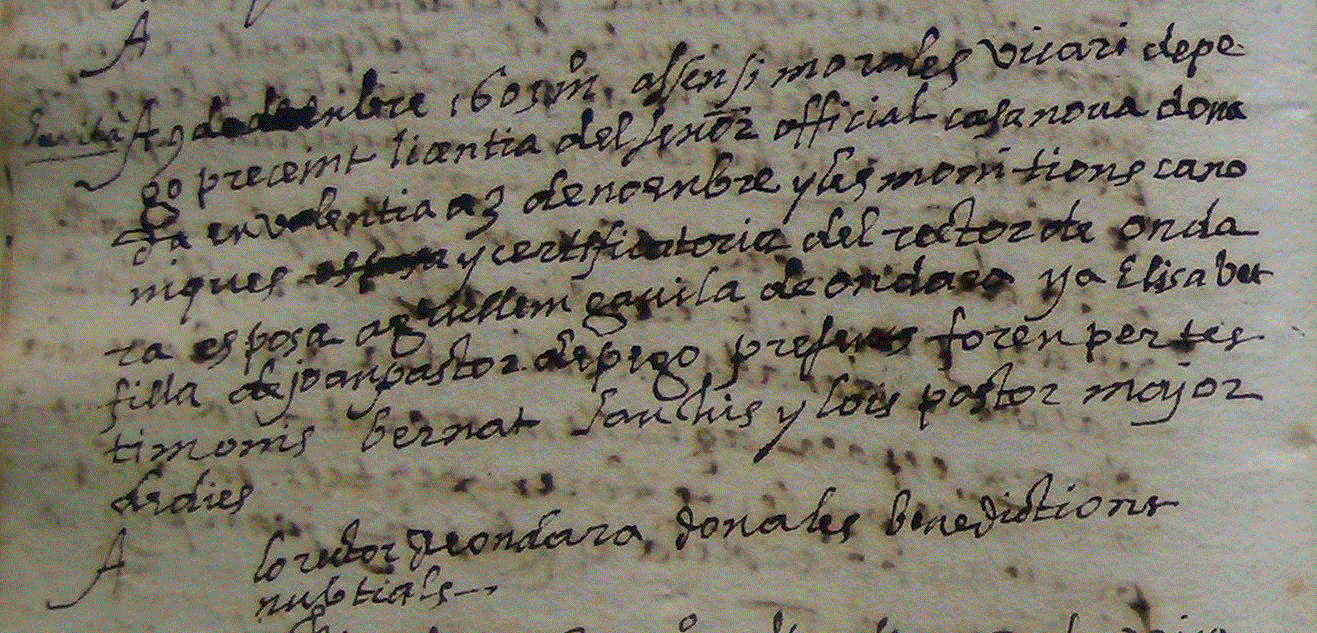 A
A 9 de deenbre 1605 mº assensi morales vicari de pe
go preceint licentia del senor official casanova dona
da en valentia a 3 de noenbre y les monitions cano
niques y certificatoria del rector de onda
ra esposa a guillem gavila de ondara y a Elisabet
filla de joan pastor de pego presens foren per tes
timonis bernat sanchis y lois pastor major
de dies
A
lo rector de ondara dona les benedictions
nubtials